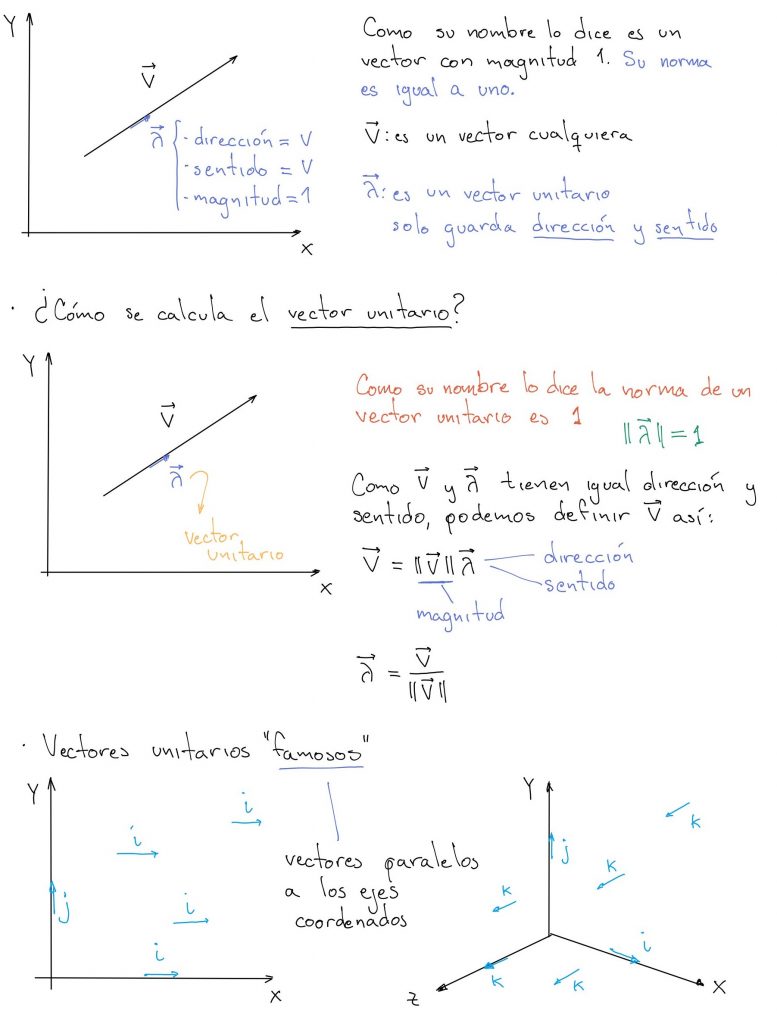 Y
Como su nombre lo dice es un
vector con magnitud 1. Su norma
es igual a uno.
V⃗
λ⃗ { - dirección = V
- sentido = V
- magnitud = 1
V⃗: es un vector cualquiera
λ⃗: es un vector unitario
solo guarda dirección y sentido
X
· ¿Cómo se calcula el vector unitario?
Y
V⃗
λ⃗
vector
unitario
X
Como su nombre lo dice la norma de un
vector unitario es 1
||λ⃗|| = 1
Como V⃗ y λ⃗ tienen igual dirección y
sentido, podemos definir V⃗ así:
V⃗ = ||V⃗|| λ⃗
dirección
sentido
magnitud
λ⃗ = V⃗ / ||V⃗||
· Vectores unitarios "famosos"
Y
i
i
j
i
i
X
vectores paralelos
a los ejes
coordenados
Y
k
j
k
k
i
k
k
Z
X